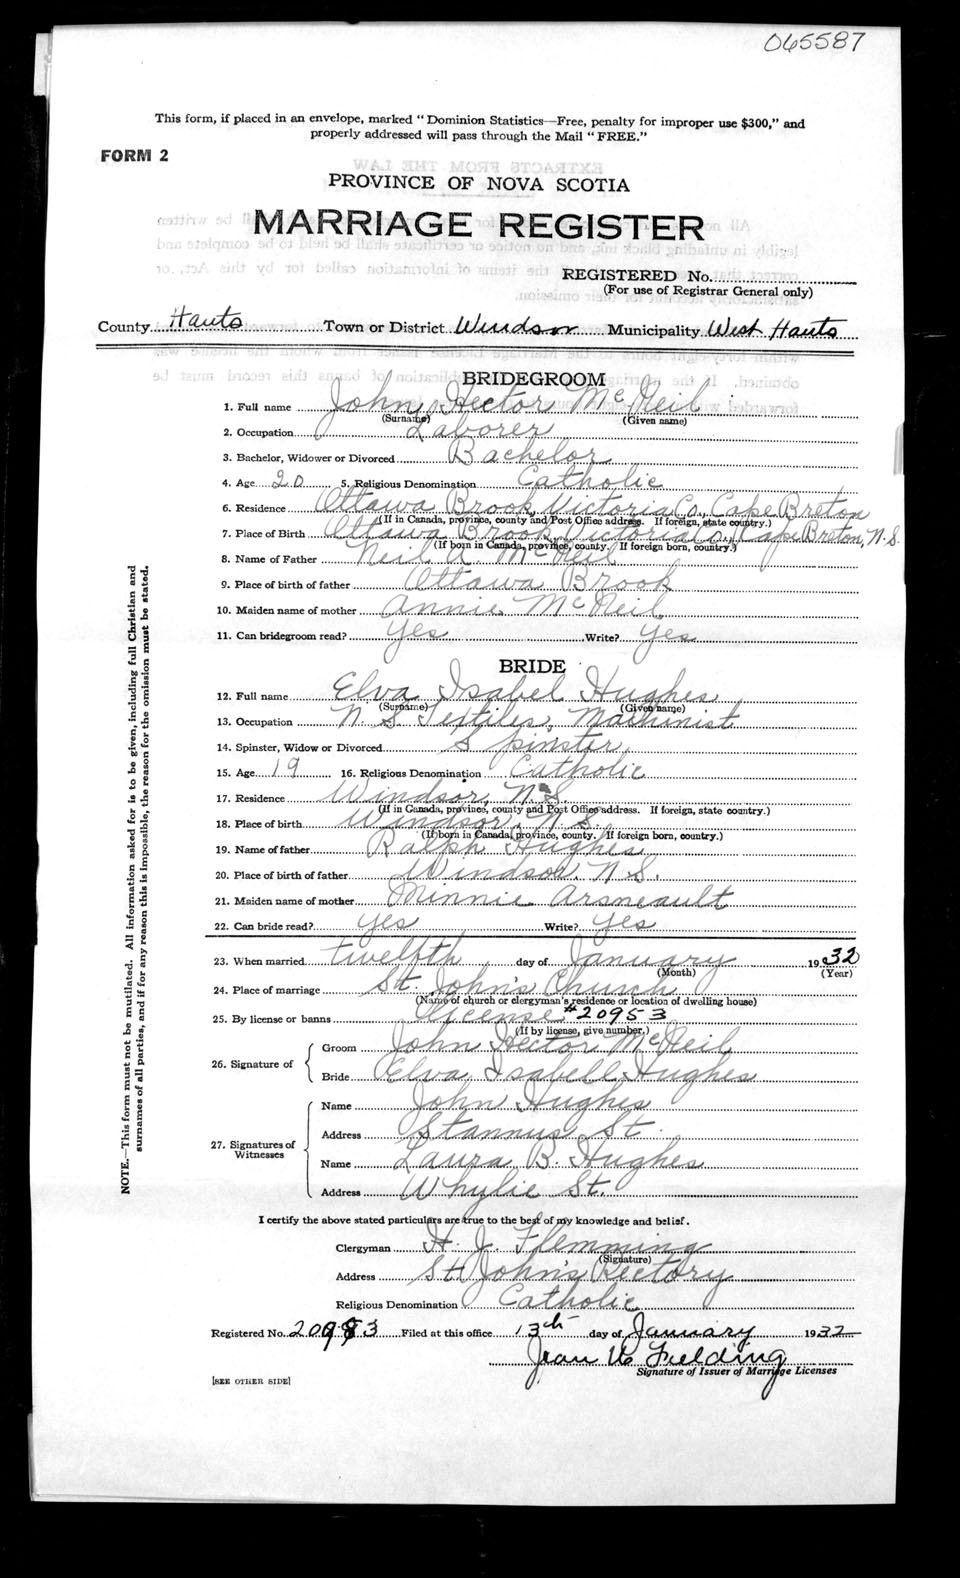 065587
This form, if placed in an envelope, marked " Dominion Statistics—Free, penalty for improper use $300," and
properly addressed will pass through the Mail " FREE."
FORM 2
EXTRACTS FROM THE LAW
PROVINCE OF NOVA SCOTIA
MARRIAGE REGISTER
REGISTERED No.
(For use of Registrar General only)
County Hants Town or District Windsor Municipality West Hants
BRIDEGROOM
1. Full name John Hector McNeil
(Surname) (Given name)
2. Occupation Laborer
3. Bachelor, Widower or Divorced Bachelor
4. Age 20 5. Religious Denomination Catholic
6. Residence Ottawa Brook, Victoria Co., Cape Breton
(If in Canada, province, county and Post Office address. If foreign, state country.)
7. Place of Birth Ottawa Brook, Victoria Co., Cape Breton, N.S.
(If born in Canada, province, county. If foreign born, country.)
8. Name of Father Neil A. McNeil
9. Place of birth of father Ottawa Brook
10. Maiden name of mother Annie McNeil
11. Can bridegroom read? Yes Write? Yes
BRIDE
12. Full name Elva Isabel Hughes
(Surname) (Given name)
13. Occupation N. S Textiles, Machinist
14. Spinster, Widow or Divorced Spinster
15. Age 19 16. Religious Denomination Catholic
17. Residence Windsor, N.S.
(If in Canada, province, county and Post Office address. If foreign, state country.)
18. Place of birth Windsor, N.S.
(If born in Canada, province, county. If foreign born, country.)
19. Name of father Ralph Hughes
20. Place of birth of father Windsor, N.S.
21. Maiden name of mother Minnie Arsneault
22. Can bride read? Yes Write? Yes
23. When married twelfth day of January 1932
(Month) (Year)
24. Place of marriage St. John's Church
(Name of church or clergyman's residence or location of dwelling house)
25. By license or banns License #20953
(If by license, give number.)
26. Signature of
Groom John Hector McNeil
Bride Elva Isabell Hughes
27. Signatures of
Witnesses
Name John Hughes
Address Stannus St.
Name Laura B. Hughes
Address Whylie St.
I certify the above stated particulars are true to the best of my knowledge and belief.
Clergyman H. J. Flemming
(Signature)
Address St John's Rectory
Religious Denomination Catholic
Registered No. Filed at this office 13th day of January 1932
Fielding
Signature of Issuer of Marriage Licenses
[SEE OTHER SIDE]
NOTE.—This form must not be mutilated. All information asked for is to be given, including full Christian and
surnames of all parties, and if for any reason this is impossible, the reason for the omission must be stated.